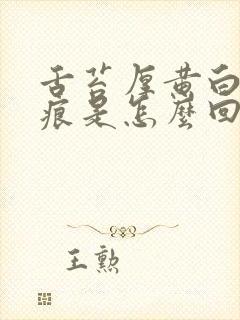 舌苔厚黄白
痕是怎麼回
王勲